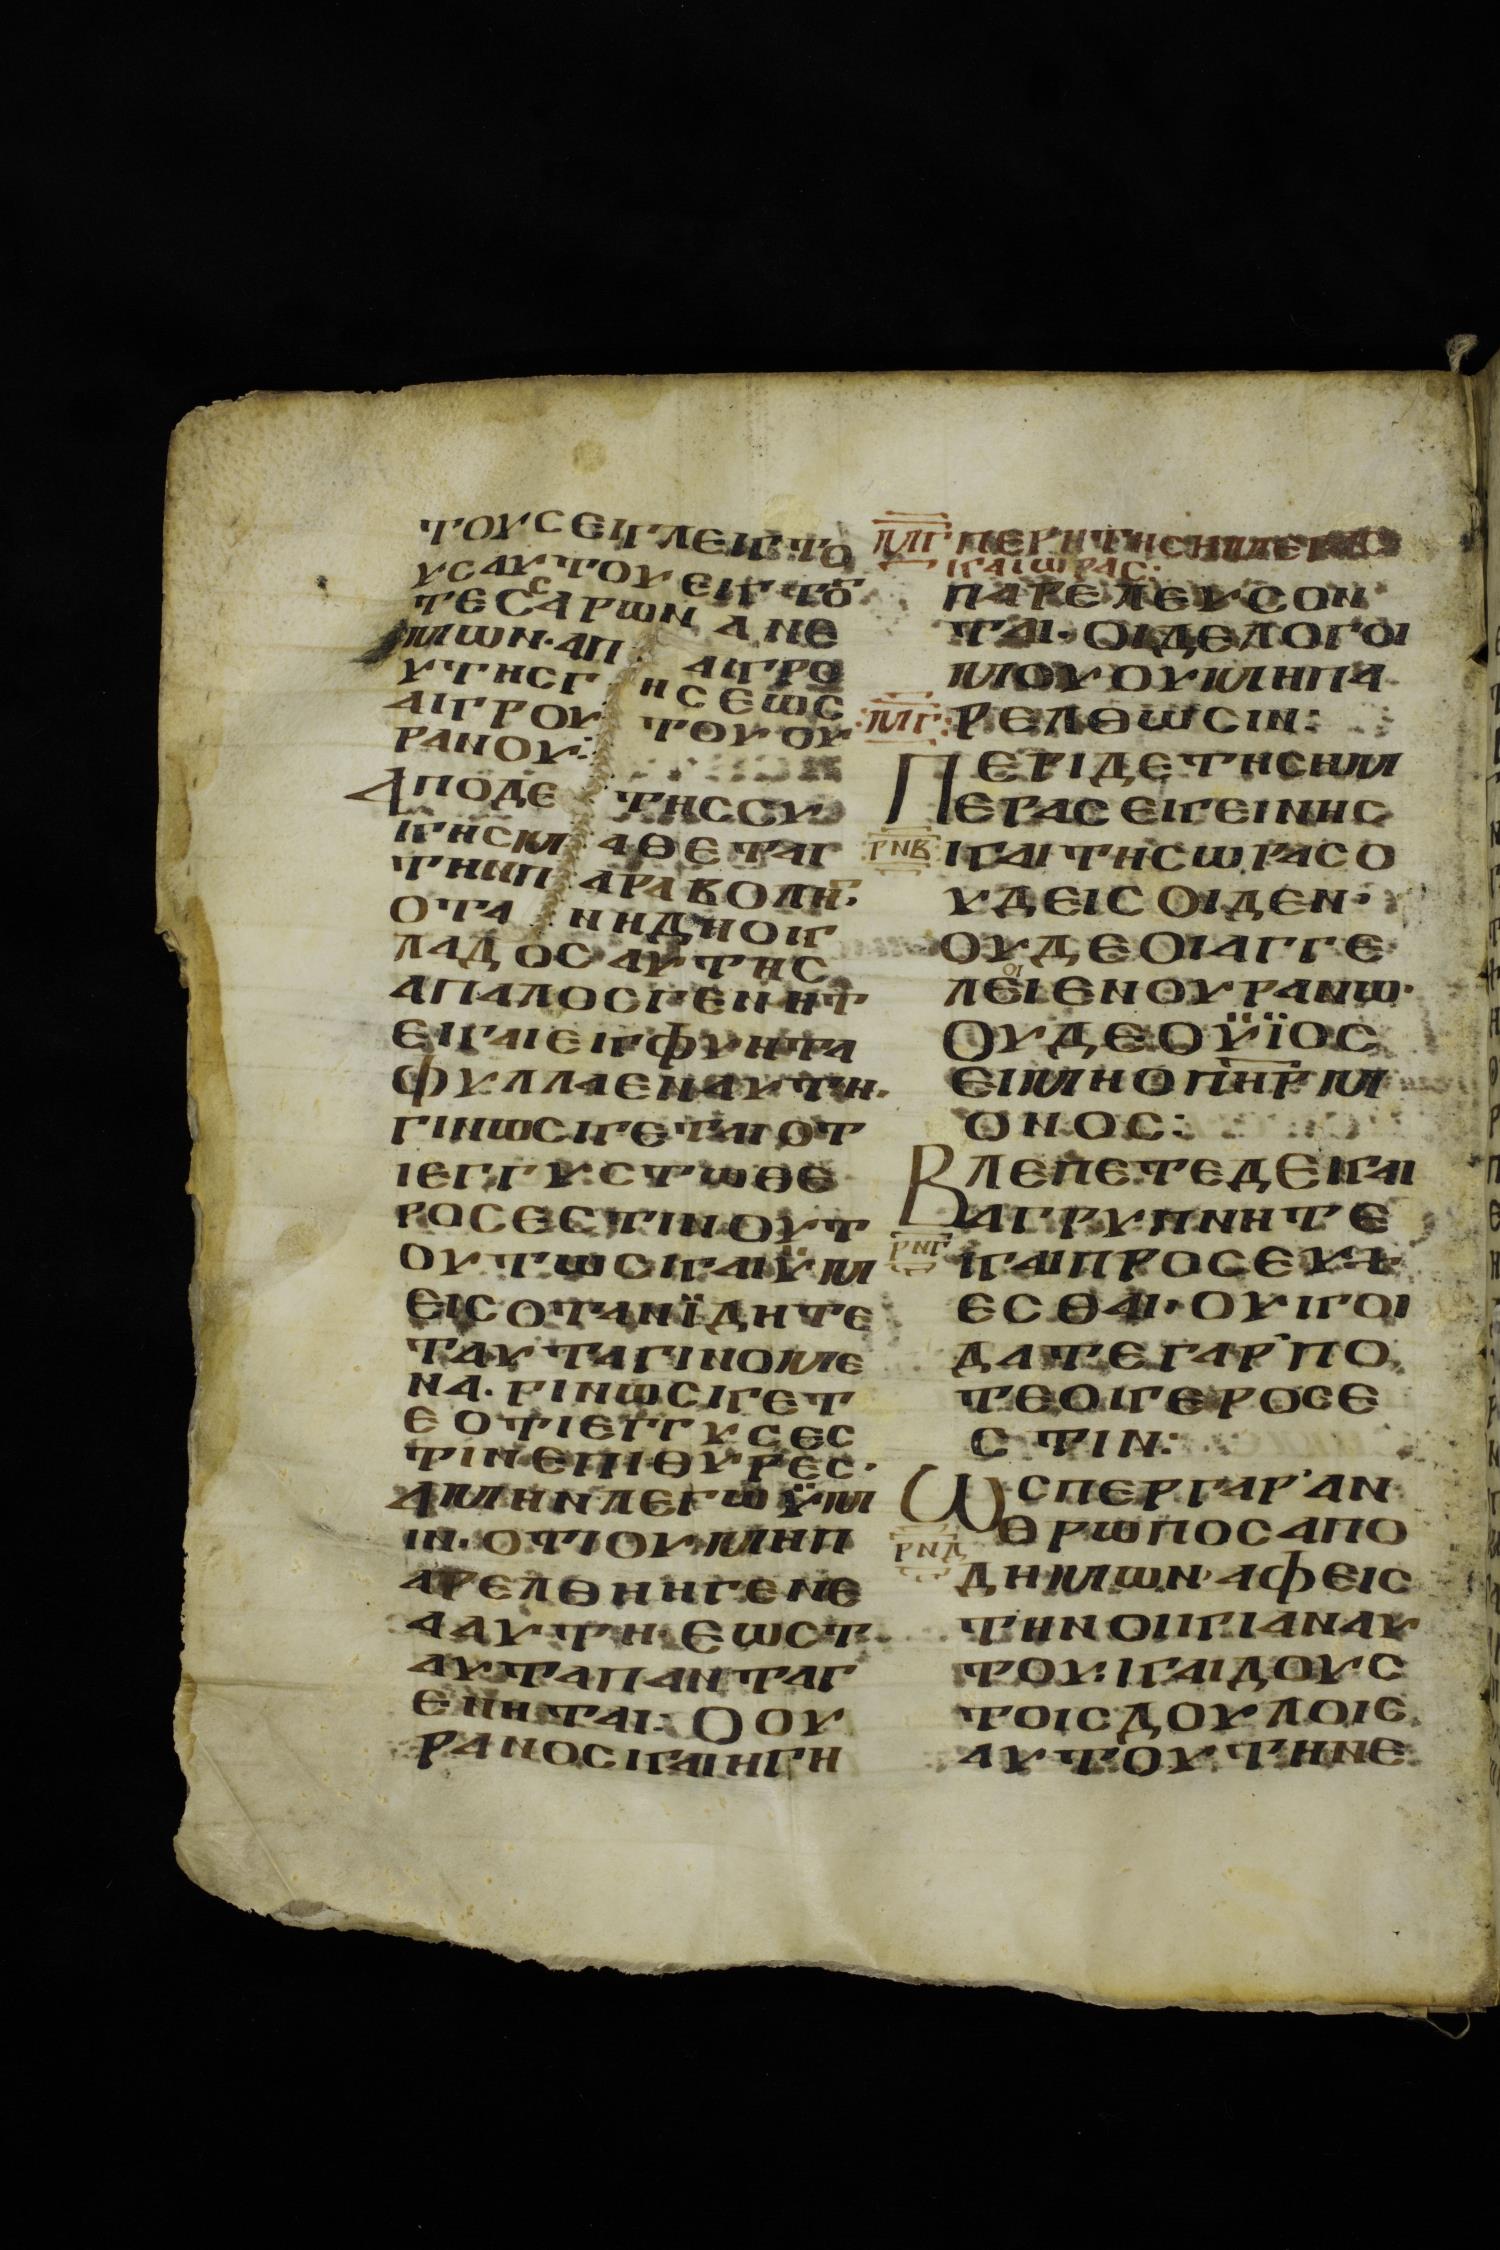 ΤΟΥCΕΚΛΕΚΤΟ
ΥCΑΥΤΟΥΕΚΤΟ
ΤΕCCΑΡΩΝΑΝΕ
ΜΩΝ·ΑΠΑΚΡΟ
ΥΤΗCΓΗCΕΩC
ΑΚΡΟΥΤΟΥΟΥ
ΡΑΝΟΥ:
ΑΠΟΔΕΤΗCCΥ
ΚΗCΜΑΘΕΤΑΙ
ΤΗΝΠΑΡΑΒΟΛΗ·
ΟΤΑΝΗΔΗΟΚ
ΛΑΔΟCΑΥΤΗC
ΑΠΑΛΟCΓΕΝΗΤ
ΕΚΑΙΕΚΦΥΗΤΑ
ΦΥΛΛΑΕΝΑΥΤΗ·
ΓΙΝΩCΚΕΤΑΙΟΤ
ΙΕΓΓΥCΤΩΘΕ
ΡΟCΕCΤΙΝΟΥΤ
ΟΥΤΩCΚΑΙΫΜ
ΕΙCΟΤΑΝΪΔΗΤΕ
ΤΑΥΤΑΓΙΝΟΜΕ
ΝΑ·ΓΙΝΩCΚΕΤ
ΕΟΤΙΕΓΓΥCΕC
ΤΙΝΕΠΙΘΥΡΕC·
ΑΜΗΝΛΕΓΩΫΜ
ΙΝ·ΟΤΙΟΥΜΗΠ
ΑΡΕΛΘΗΗΓΕΝΕ
ΑΑΥΤΗ·ΕΩCΤ
ΑΥΤΑΠΑΝΤΑΓ
ΕΝΗΤΑΙ:ΟΟΥ
ΡΑΝΟCΚΑΙΗΓΗ
ΜΓ ΠΕΡΗΤΗCΗΜΕΡΑC
ΚΑΙΩΡΑC:
ΠΑΡΕΛΕΥCΟΝ
ΤΑΙ·ΟΙΔΕΛΟΓΟΙ
ΜΟΥΟΥΜΗΠΑ
ΜΓ ΡΕΛΘΩCΙΝ:
ΠΕΡΙΔΕΤΗCΗΜ
ΕΡΑCΕΚΕΙΝΗC
ΡΝΒ ΚΑΙΤΗCΩΡΑCΟ
ΥΔΕΙCΟΙΔΕΝ·
ΟΥΔΕΟΙΑΓΓΕ
ΛΕΙΟΙΕΝΟΥΡΑΝΩ·
ΟΥΔΕΟΫΪΟC
ΕΙΜΗΟΠΗΡΜ
ΟΝΟC:
ΒΛΕΠΕΤΕΔΕΚΑΙ
ΑΓΡΥΠΝΗΤΕ
ΡΝΓ ΚΑΙΠΡΟCΕΥΧ
ΕCΘΑΙ·ΟΥΚΟΙ
ΔΑΤΕΓΑΡ'ΠΟ
ΤΕΟΚΕΡΟCΕ
CΤΙΝ:
ΩCΠΕΡΓΑΡ'ΑΝ
ΘΡΩΠΟCΑΠΟ
ΡΝΔ ΔΗΜΩΝ·ΑΦΕΙC
ΤΗΝΟΙΚΙΑΝΑΥ
ΤΟΥ:ΚΑΙΔΟΥC
ΤΟΙCΔΟΥΛΟΙC
ΑΥΤΟΥΤΗΝΕ